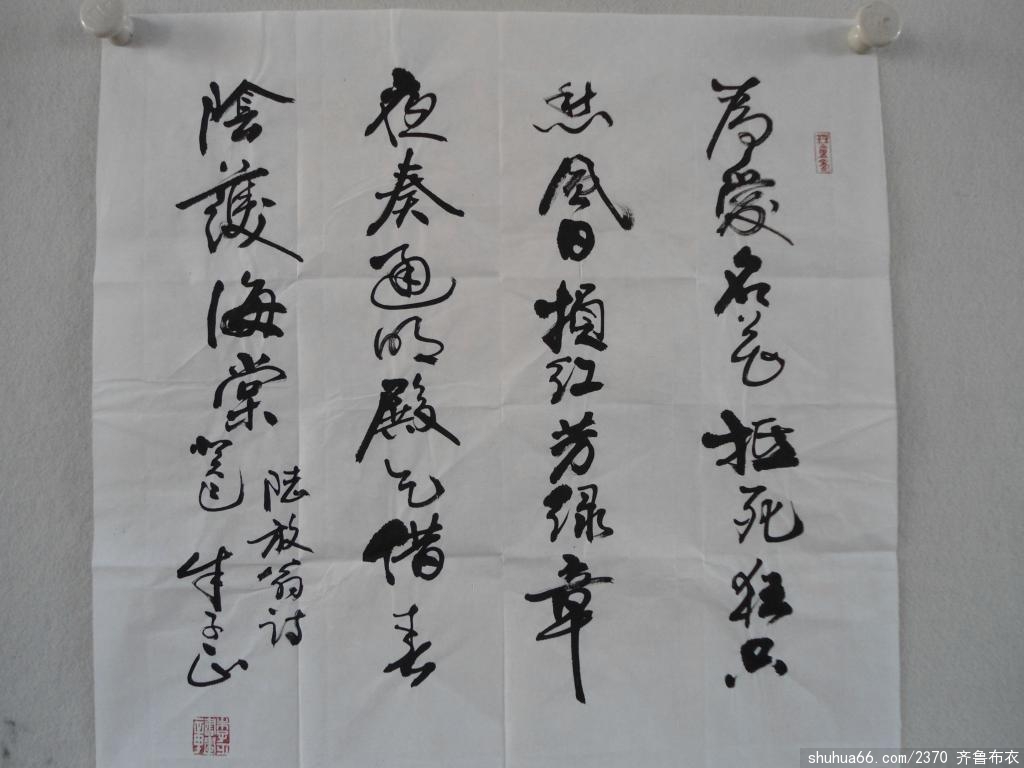 為愛名花抵死狂只
愁風日損红芳绿章
夜奏通明殿乞借春
陰護海棠
陸放翁诗
癸巳 朱子正
shuhua66.com/2370 齐鲁布衣